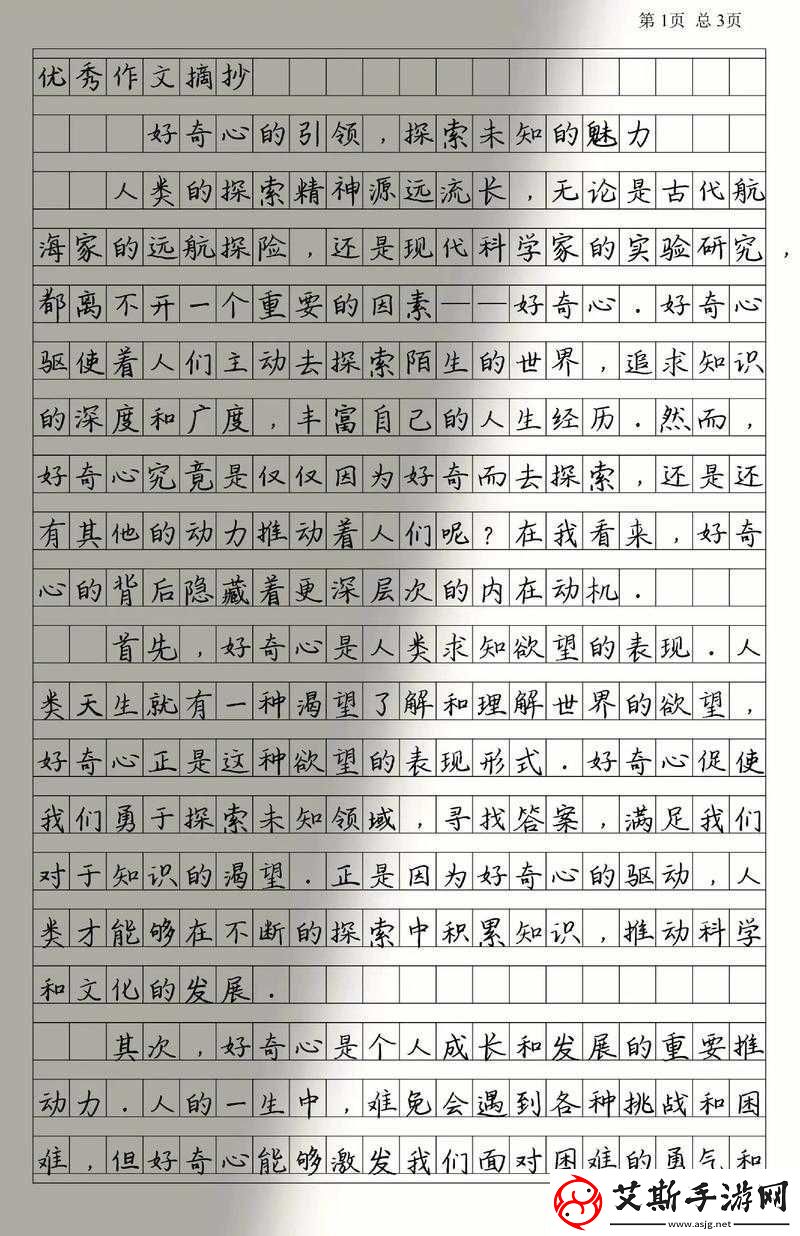 第 1页 总 3页
优秀作文摘抄
好奇心的引领，探索未知的魅力
人类的探索精神源远流长，无论是古代航
海家的远航探险，还是现代科学家的实验研究，
都离不开一个重要的因素——好奇心．好奇心
驱使着人们主动去探索陌生的世界，追求知识
的深度和广度，丰富自己的人生经历．然而，
好奇心究竟是仅仅因为好奇而去探索，还是还
有其他的动力推动着人们呢？在我看来，好奇
心的背后隐藏着更深层次的内在动机．
首先，好奇心是人类求知欲望的表现．人
类天生就有一种渴望了解和理解世界的欲望，
好奇心正是这种欲望的表现形式．好奇心促使
我们勇于探索未知领域，寻找答案，满足我们
对于知识的渴望．正是因为好奇心的驱动，人
类才能够在不断的探索中积累知识，推动科学
和文化的发展．
其次，好奇心是个人成长和发展的重要推
动力．人的一生中，难免会遇到各种挑战和困
难，但好奇心能够激发我们面对困难的勇气和
艾斯手游网
www.asjg.net